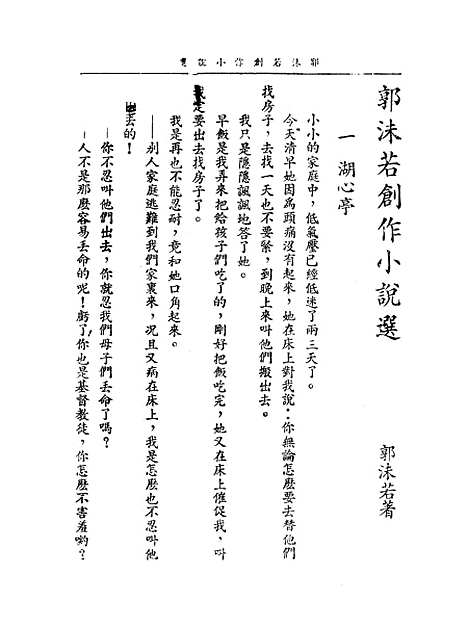 郭沫若創作小說選
郭沫若創作小說選
郭沫若著
一　湖心亭
小小的家庭中，低氣壓已經低迷了兩三天了。
今天清早她因爲頭痛沒有起來，她在床上對我說：你無論怎麽要去替他們
找房子，去找一天也不要緊，到晚上來叫他們搬出去。
我只是隱隱諷諷地答了她。
早飯是我弄來把給孩子們吃了的，剛好把飯吃完，她又在床上催促我，叫
我定要出去找房子了。
我是再也不能忍耐，竟和她口角起來。
——別人家庭逃難到我們家裏來，况且又病在床上，我是怎麽也不忍叫他
出去的！
——你不忍叫他們出去，你就忍我們母子們丟命了嗎？
——人不是那麽容易丟命的呢！虧了，你也是基督教徒，你怎麽不害羞喲？